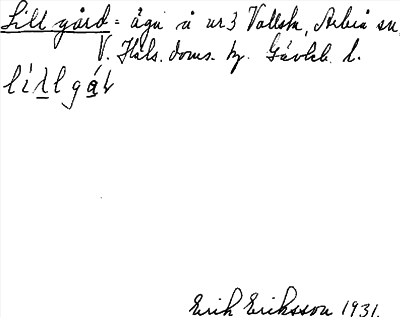 Lillgård = äga å nr 3 Vallsta, Arbrå sn,
V. Häls. doms. hy. Gävleb. l.
lìllgá̱r
Erik Eriksson 1931.